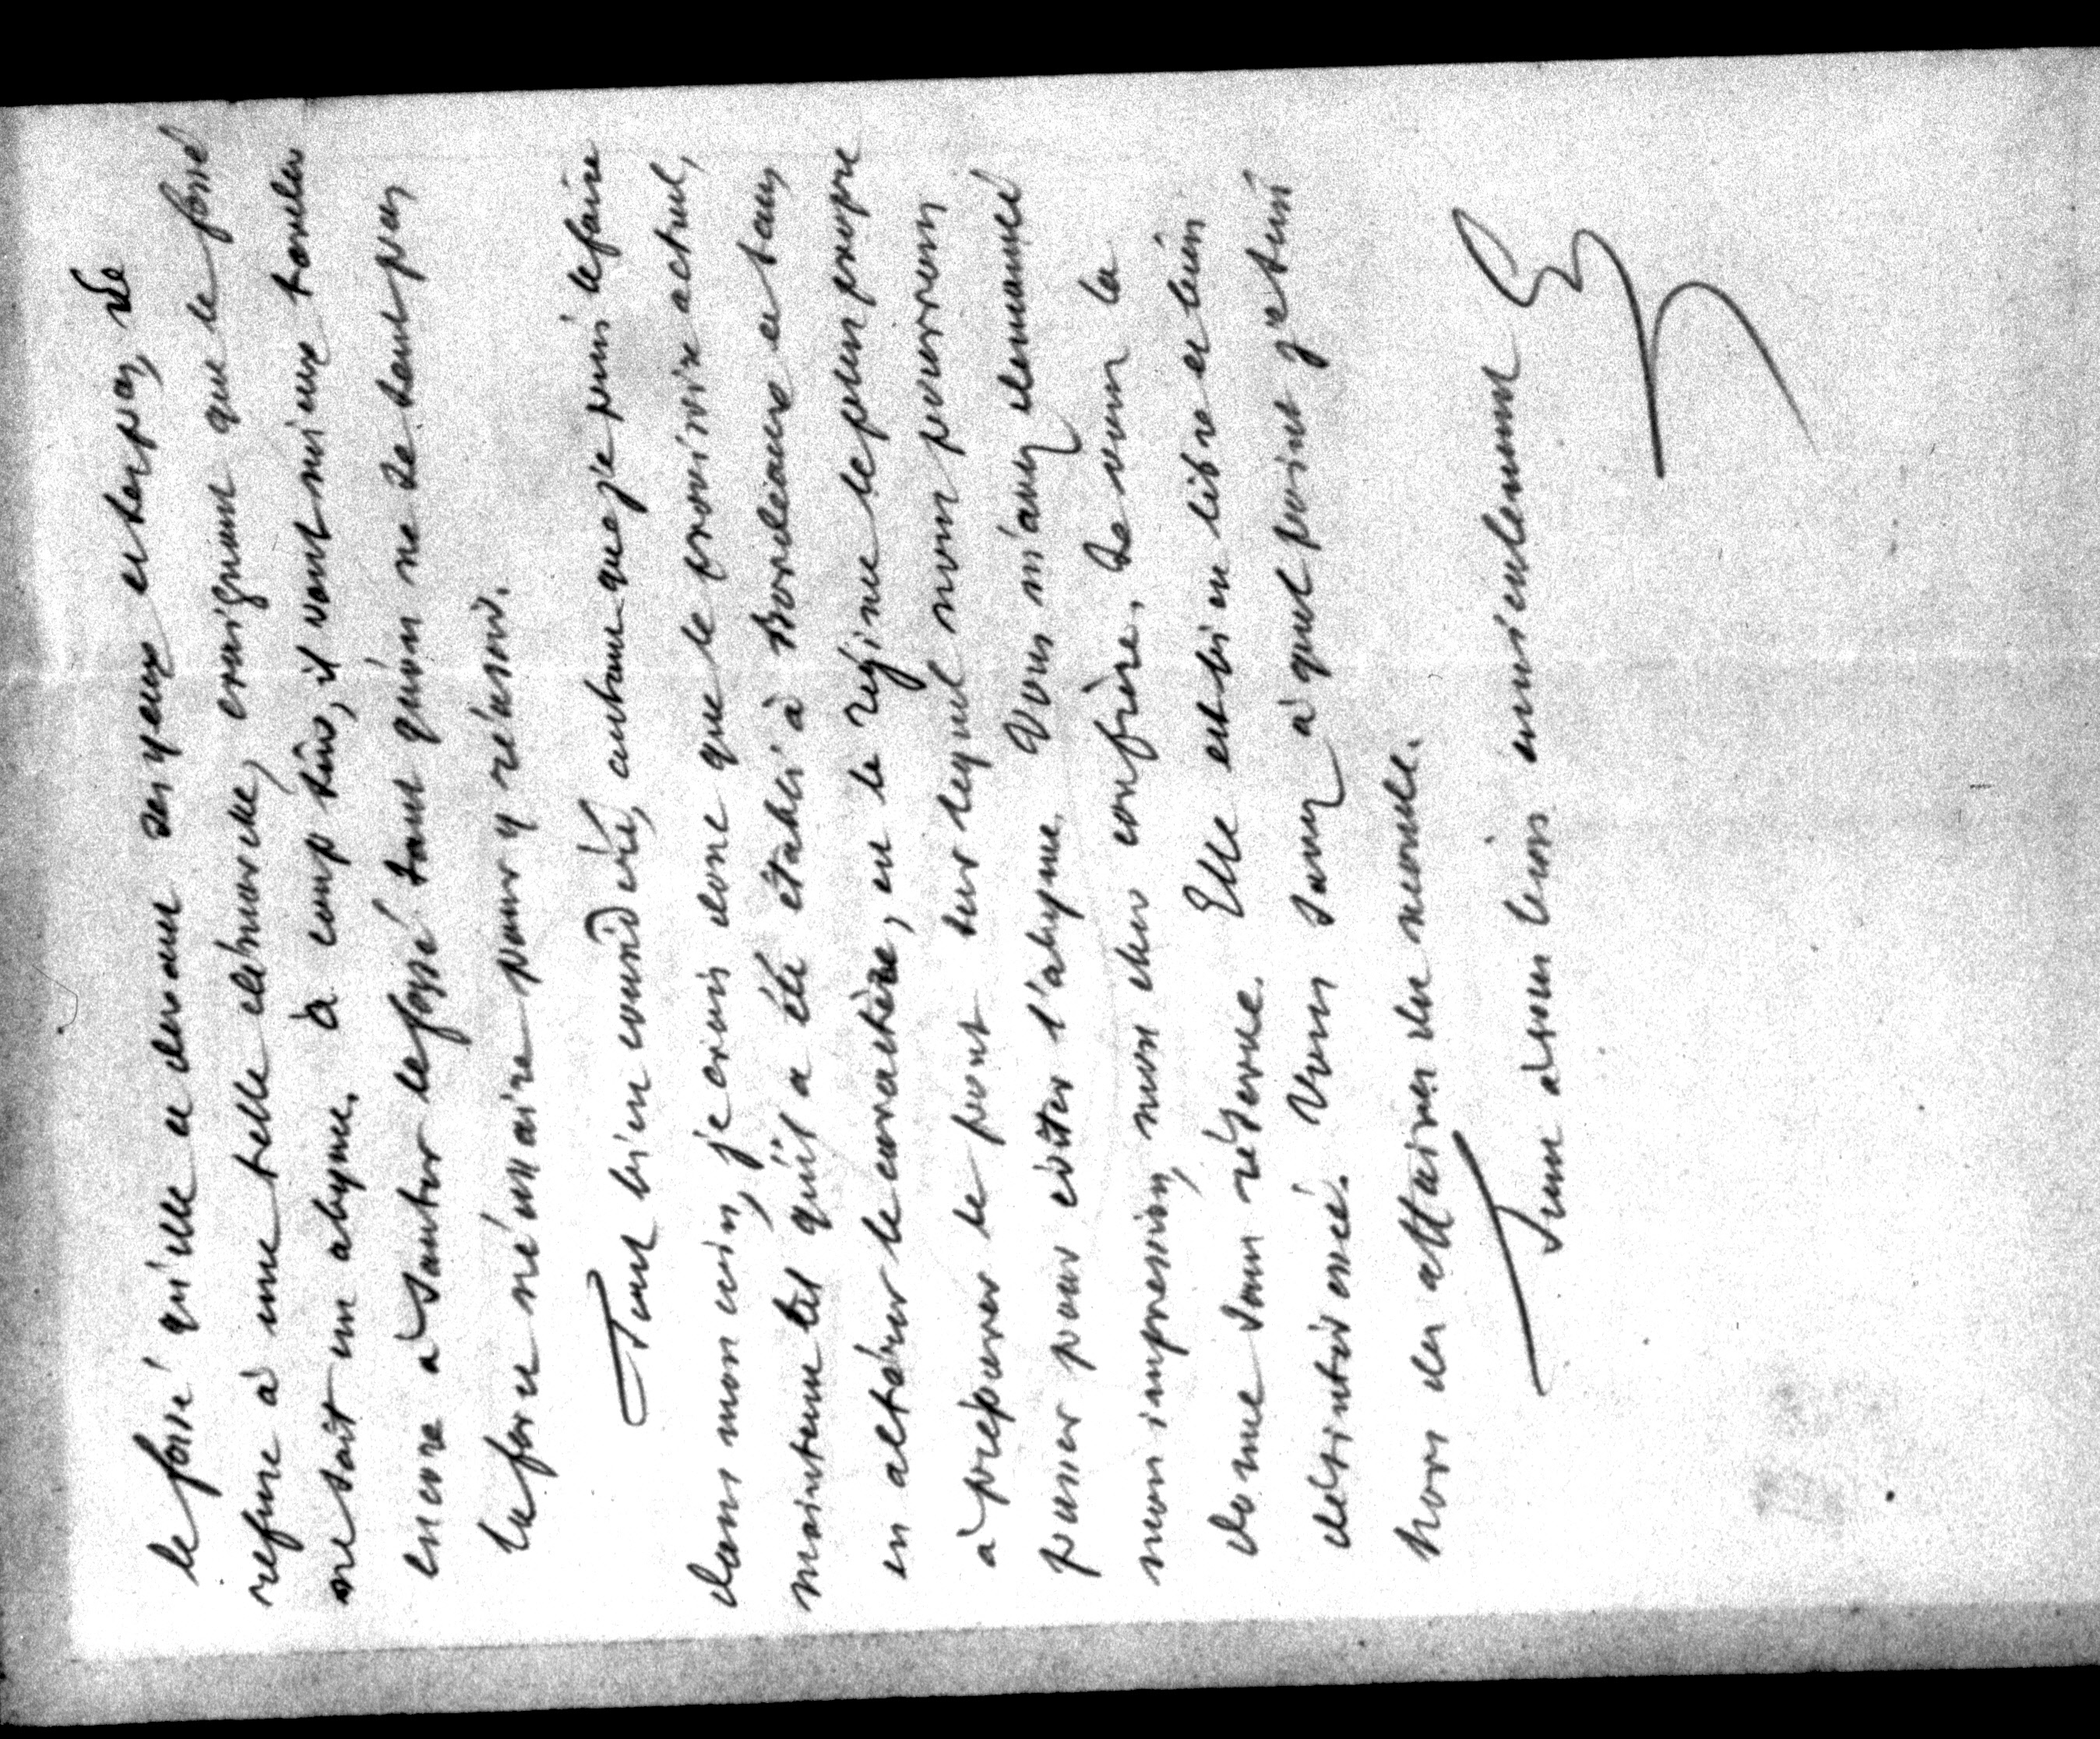 le fossé qu'elle a devant ses yeux et ses pas, se
refuse à une telle démarche, craignant que le fossé
ne soit un abyme. à coup sûr, il vaut mieux reculer
encore à sauter le fossé tant qu'on ne se sent pas
la force nécessaire pour y réussir.
Tout bien considéré, autant que je puis le faire
dans mon coin, je crois donc que le provisoire actuel,
maintenu tel qu'il a été établi à Bordeaux et sans
en altérer le caractère, est le régime le plus propre
à préparer le pont sur lequel nous pourrons
passer pour éviter l'abyme. Vous m'avez demandé
mon impression, mon cher confrère. Je vous la
donne sans réserve. Elle est bien libre et bien
désintéressée. Vous savez à quel point je suis
hors des affaires du monde.
Tout à vous bien cordialement